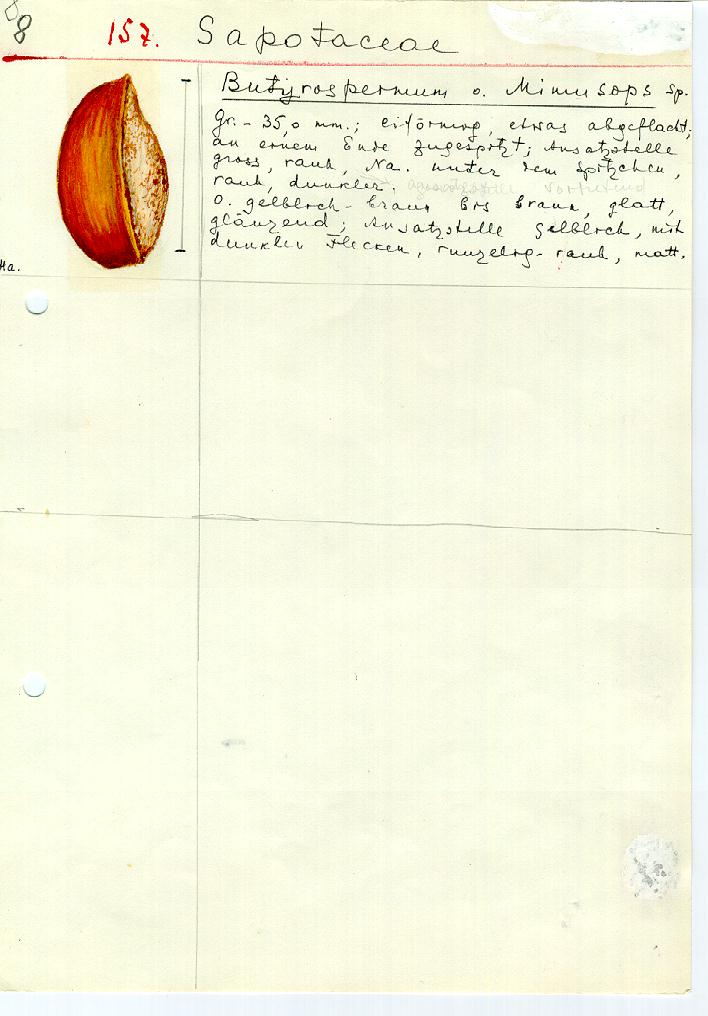 8
157. Sapotaceae
Butyrospermum o. Mimusops sp.
Gr. - 35,0 mm.; eiförmig, etwas abgeflacht,
an einem Ende zugespitzt; Ansatzstelle
gross, rauh, Na. unter dem Spitzchen,
rauh, dunkler.
O. gelblich-braun bis braun, glatt,
glänzend; Ansatzstelle gelblich, mit
dunklen Flecken, runzelig-rauh, matt.
Ha.